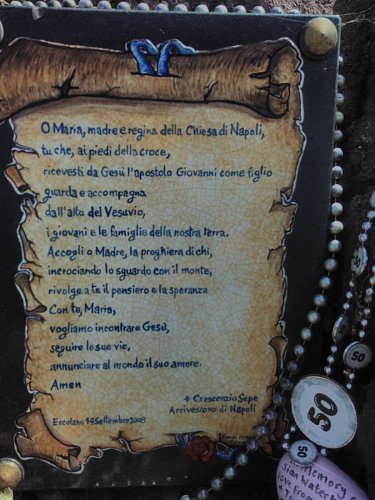 O Maria, madre e regina della Chiesa di Napoli,
tu che, ai piedi della croce,
ricevesti da Gesù l'apostolo Giovanni come figlio
guarda e accompagna
dall'alto del Vesuvio,
i giovani e le famiglie della nostra terra.
Accogli o Madre, la preghiera di chi,
incrociando lo sguardo con il monte,
rivolge a te il pensiero e la speranza
Con te, Maria,
vogliamo incontrare Gesù,
seguire le sue vie,
annunciare al mondo il suo amore.
Amen
+ Crescenzio Sepe
Arcivescovo di Napoli
Ercolano 14 Settembre
50
50
50
50
Memory